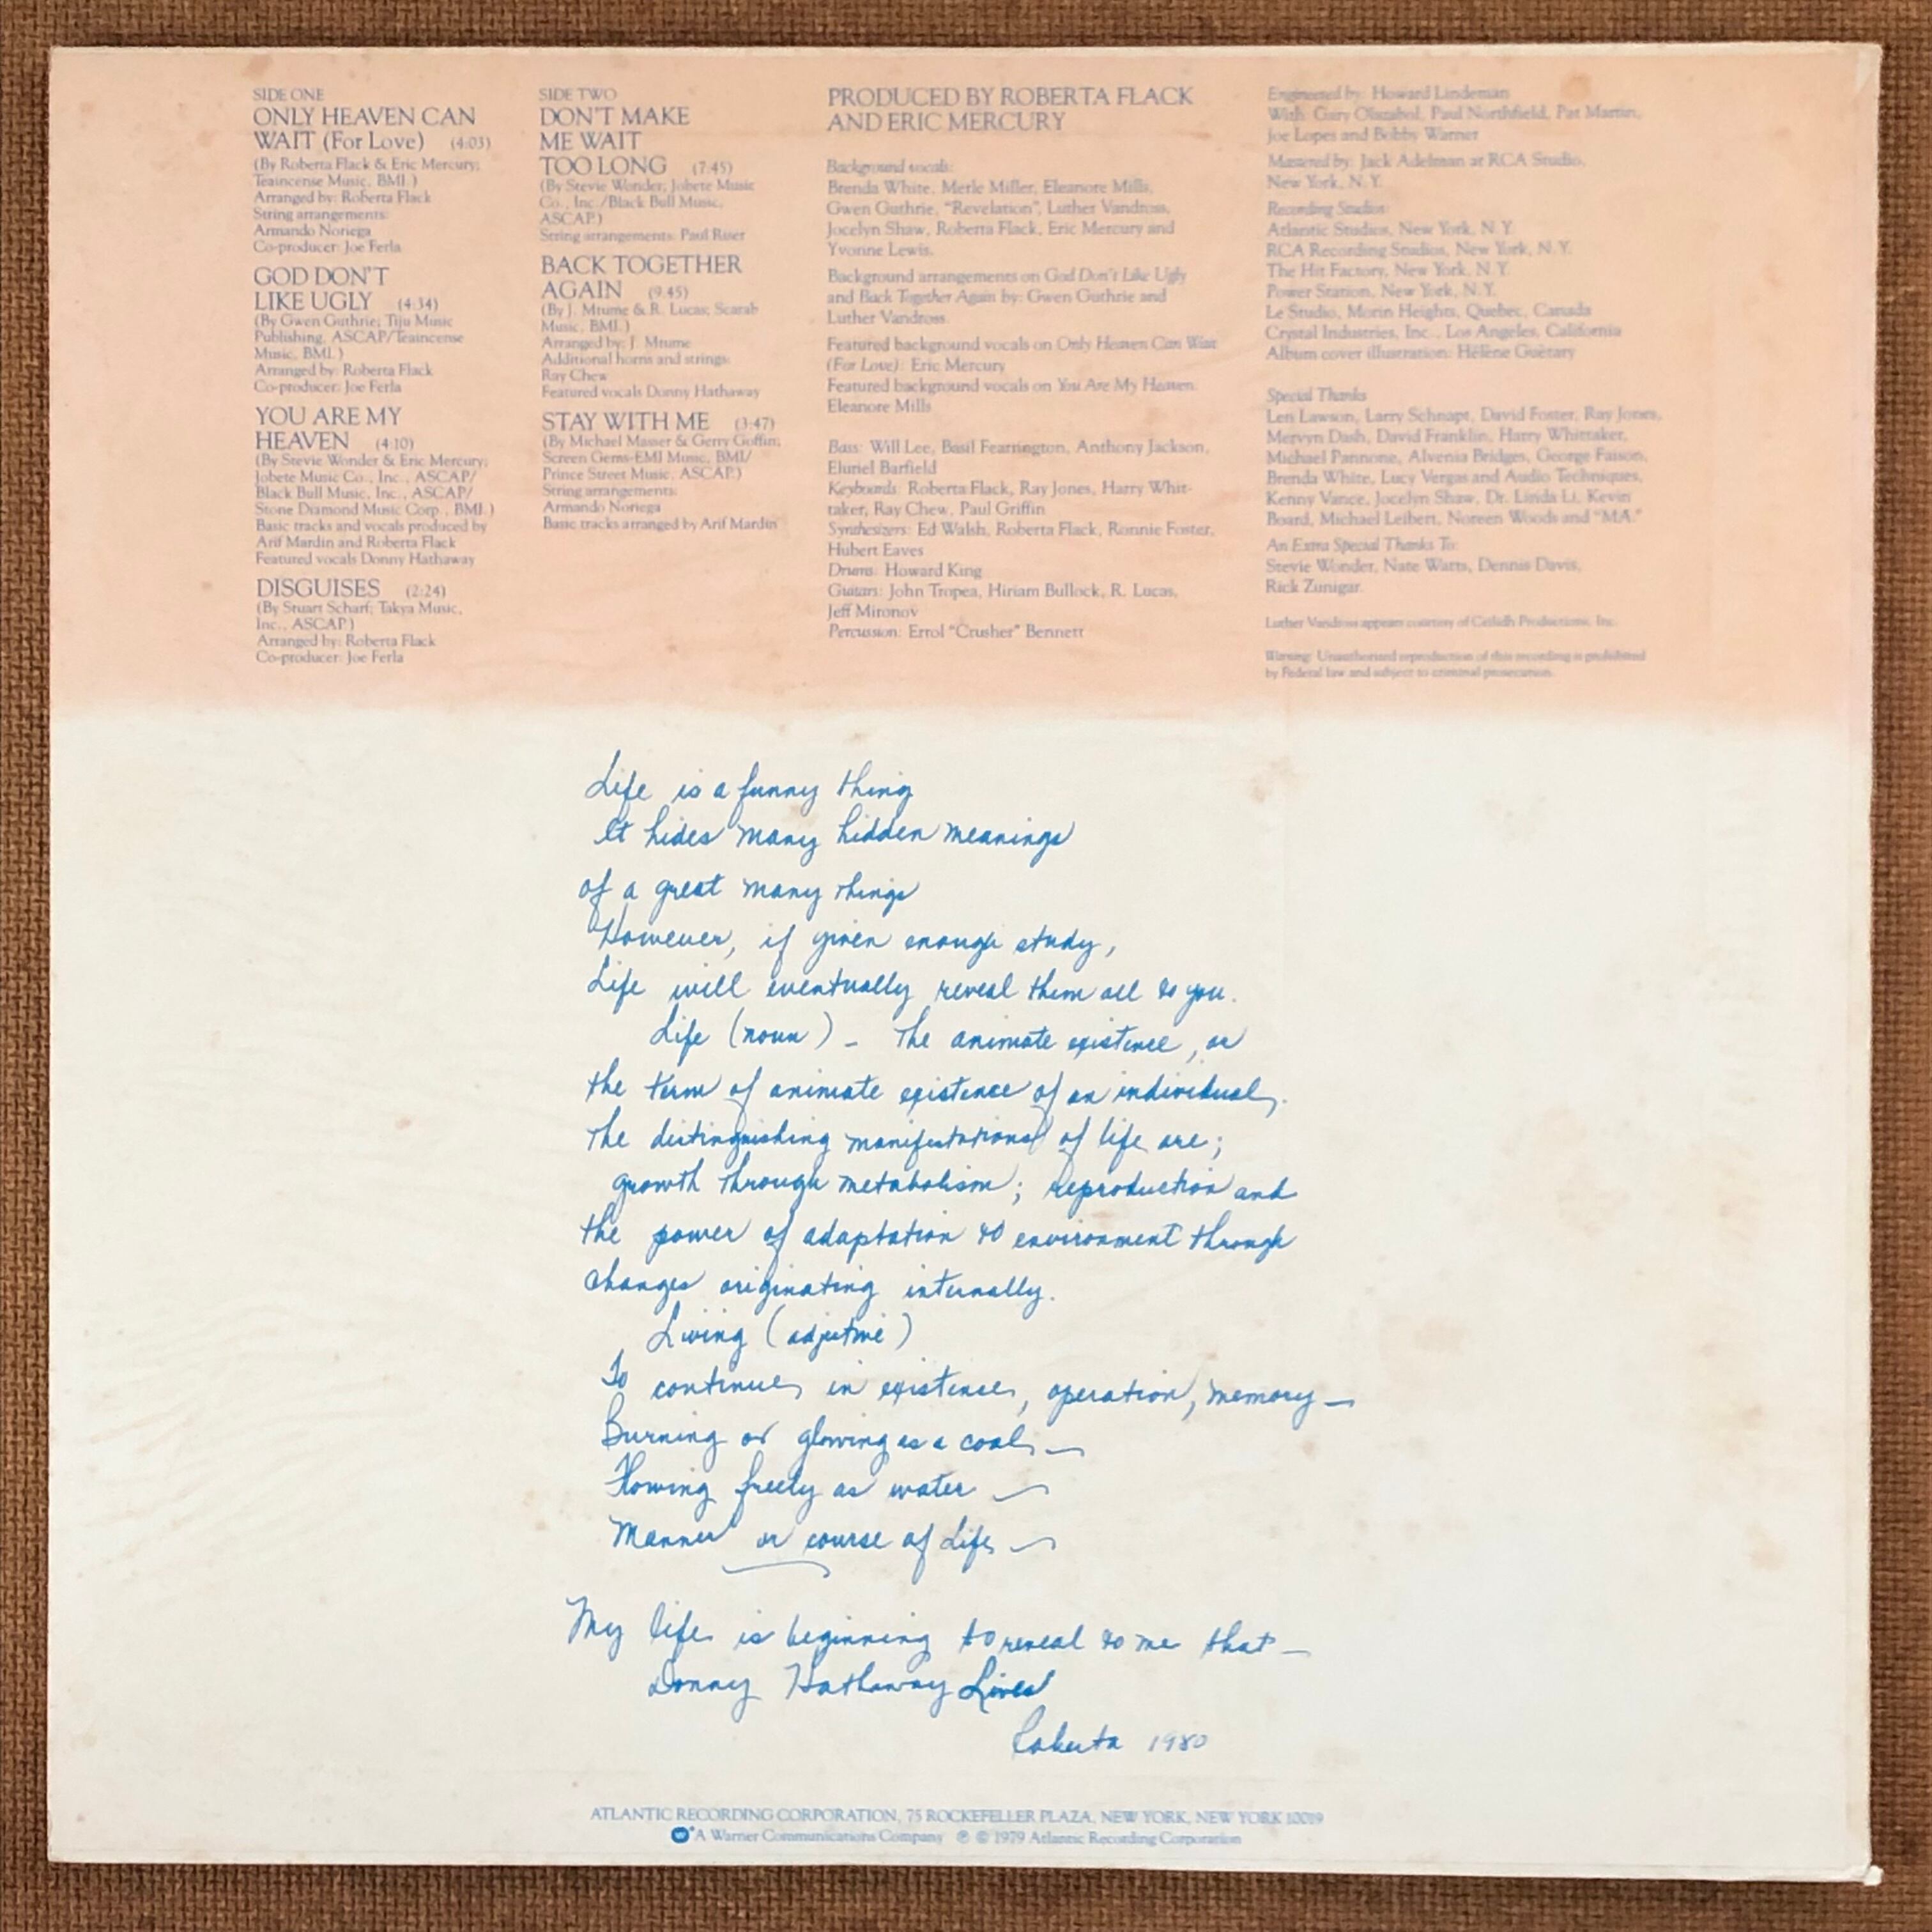 SIDE ONE
ONLY HEAVEN CAN
WAIT (For Love) (4:03)
(By Roberta Flack & Eric Mercury;
Teaincense Music, BMI.)
Arranged by: Roberta Flack
String arrangements:
Armando Noriega
Co-producer: Joe Ferla
GOD DON'T
LIKE UGLY (4:34)
(By Gwen Guthrie; Tiju Music
Publishing, ASCAP/Teaincense
Music, BMI.)
Arranged by: Roberta Flack
Co-producer: Joe Ferla
YOU ARE MY
HEAVEN (4:10)
(By Stevie Wonder & Eric Mercury;
Jobete Music Co., Inc., ASCAP/
Black Bull Music, Inc., ASCAP/
Stone Diamond Music Corp., BMI.)
Basic tracks and vocals produced by
Arif Mardin and Roberta Flack
Featured vocals Donny Hathaway
DISGUISES (2:24)
(By Stuart Scharf; Takya Music,
Inc., ASCAP)
Arranged by: Roberta Flack
Co-producer: Joe Ferla
SIDE TWO
DON'T MAKE
ME WAIT
TOO LONG (7:45)
(By Stevie Wonder; Jobete Music
Co., Inc./Black Bull Music,
ASCAP)
String arrangements: Paul Riser
BACK TOGETHER
AGAIN (9:45)
(By J. Mtume & R. Lucas; Scarab
Music, BMI.)
Arranged by: J. Mtume
Additional horns and strings:
Ray Chew
Featured vocals Donny Hathaway
STAY WITH ME (3:47)
(By Michael Masser & Gerry Goffin;
Screen Gems-EMI Music, BMI/
Prince Street Music, ASCAP.)
String arrangements:
Armando Noriega
Basic tracks arranged by Arif Mardin
PRODUCED BY ROBERTA FLACK
AND ERIC MERCURY
Background vocals:
Brenda White, Merle Miller, Eleanore Mills,
Gwen Guthrie, "Revelation", Luther Vandross,
Jocelyn Shaw, Roberta Flack, Eric Mercury and
Yvonne Lewis.
Background arrangements on God Don't Like Ugly
and Back Together Again by: Gwen Guthrie and
Luther Vandross.
Featured background vocals on Only Heaven Can Wait
(For Love): Eric Mercury
Featured background vocals on You Are My Heaven:
Eleanore Mills
Bass: Will Lee, Basil Fearrington, Anthony Jackson,
Eluriel Barfield
Keyboards: Roberta Flack, Ray Jones, Harry Whit-
taker, Ray Chew, Paul Griffin
Synthesizers: Ed Walsh, Roberta Flack, Ronnie Foster,
Hubert Eaves
Drums: Howard King
Guitars: John Tropea, Hiriam Bullock, R. Lucas,
Jeff Mironov
Percussion: Errol "Crusher" Bennett
Engineered by: Howard Lindeman
With: Gary Olazabal, Paul Northfield, Pat Martin,
Joe Lopes and Bobby Warner
Mastered by: Jack Adelman at RCA Studio,
New York, N.Y.
Recording Studios:
Atlantic Studios, New York, N.Y.
RCA Recording Studios, New York, N.Y.
The Hit Factory, New York, N.Y.
Power Station, New York, N.Y.
Le Studio, Morin Heights, Quebec, Canada
Crystal Industries, Inc., Los Angeles, California
Album cover illustration: Hélène Guétary
Special Thanks
Len Lawson, Larry Schnapt, David Foster, Ray Jones,
Mervyn Dash, David Franklin, Harry Whittaker,
Michael Pannone, Alvenia Bridges, George Faison,
Brenda White, Lucy Vergas and Audio Techniques,
Kenny Vance, Jocelyn Shaw, Dr. Linda Li, Kevin
Board, Michael Leibert, Noreen Woods and "MA."
An Extra Special Thanks To:
Stevie Wonder, Nate Watts, Dennis Davis,
Rick Zunigar.
Luther Vandross appears courtesy of Ceilidh Productions, Inc.
Warning: Unauthorized reproduction of this recording is prohibited
by Federal law and subject to criminal prosecution.
Life is a funny thing
It hides many hidden meanings
of a great many things
However, if given enough study,
Life will eventually reveal them all to you.
Life (noun) - The animate existence, or
the term of animate existence of an individual.
The distinguishing manifestations of life are;
growth through metabolism; reproduction and
the power of adaptation to environment through
changes originating internally.
Living (adjective)
To continue in existence, operation, memory —
Burning or glowing as a coal —
Flowing freely as water —
Manner or course of Life —
My life is beginning to reveal to me that —
Donny Hathaway Lives
Roberta 1980
ATLANTIC RECORDING CORPORATION, 75 ROCKEFELLER PLAZA, NEW YORK, NEW YORK 10019
A Warner Communications Company ℗ © 1979 Atlantic Recording Corporation